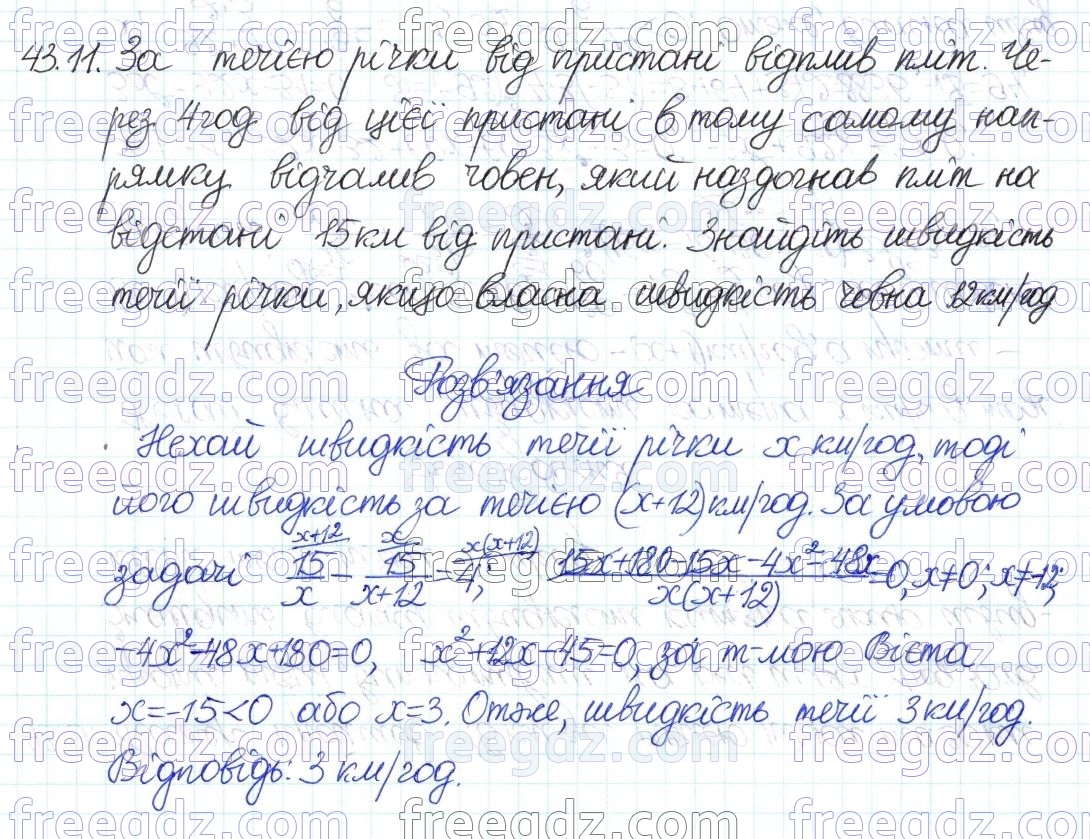 43.11. За течією річки від пристані відплив пліт. Че-
рез 4 год від цієї пристані в тому самому нап-
рямку відчалив човен, який наздогнав пліт на
відстані 15 км від пристані. Знайдіть швидкість
течії річки, якщо власна швидкість човна 12 км/год
Розв'язання
Нехай швидкість течії річки x км/год, тоді
його швидкість за течією (x+12) км/год. За умовою
x+12 x x(x+12)
задачі 15/x - 15/(x+12) = 4; (15x+180-15x-4x²-48x)/(x(x+12)) = 0, x≠0; x≠-12;
-4x²-48x+180=0, x²+12x-45=0, за т-мою Вієта
x=-15<0 або x=3. Отже, швидкість течії 3 км/год.
Відповідь: 3 км/год.
freegdz.com